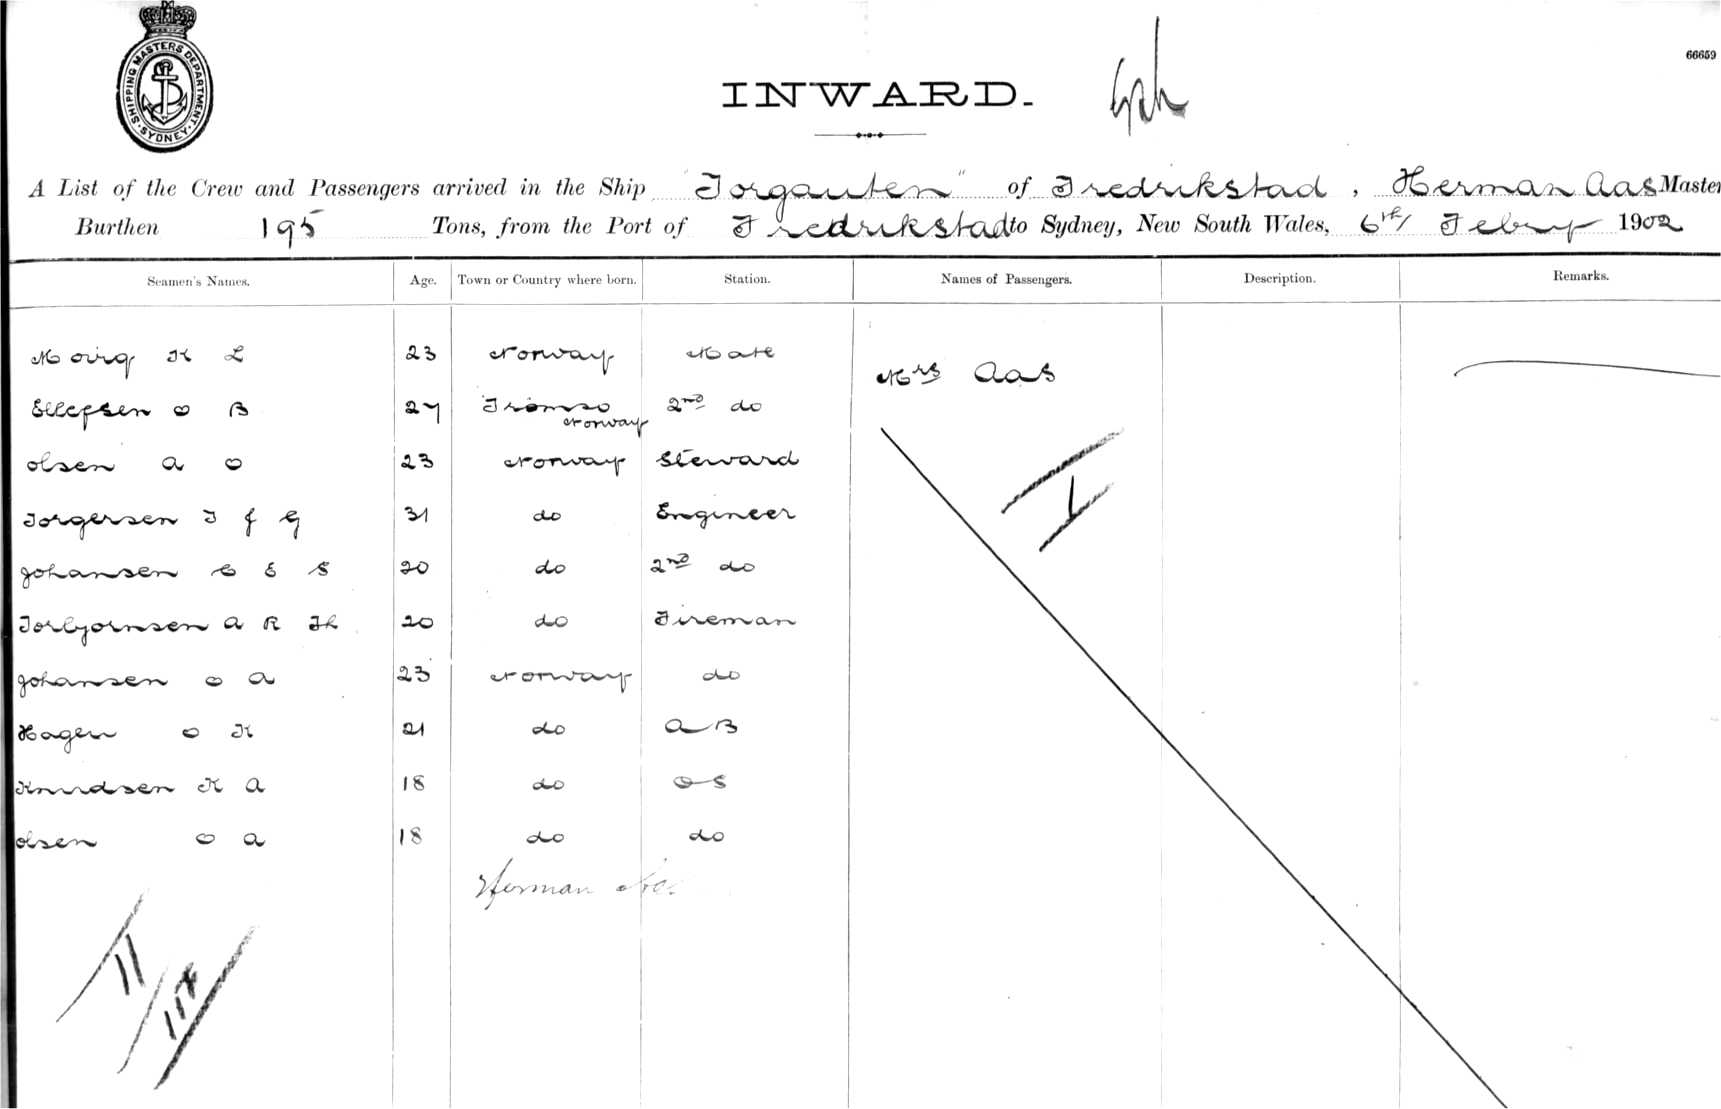 SHIPPING MASTERS DEPARTMENT. SYDNEY.
66659
INWARD.
A List of the Crew and Passengers arrived in the Ship "Torgauten" of Fredrikstad, Herman Aas Master
Burthen 195 Tons, from the Port of Fredrikstad to Sydney, New South Wales, 6th Febry 1902
Seamen's Names. Age. Town or Country where born. Station. Names of Passengers. Description. Remarks.
K L 23 Norway Mate
Mrs Aas
Ellefsen O B 27 Tromso Norway 2nd do
Olsen A O 23 Norway Steward
Jorgersen J G 31 do Engineer
1
Johansen C E S 20 do 2nd do
Torbjornsen A R Th 20 do Fireman
Johansen O A 23 Norway do
Hagen O K 21 do AB
Knudsen K A 18 do OS
Olsen O A 18 do do
Herman Aas
11